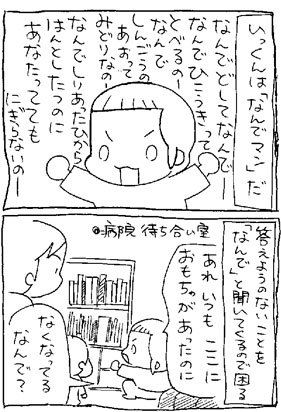 いっくんは「なんでマン」だ
なんでどしてなんでー
なんでひこうきって
とべるのー
なんで
しんごうの
あおって
みどりなのー
なんでしりあたひから
はんとしたつのに
あなたってても
にぎらないのー
答えようのないことを
「なんで」と聞いてくるので困る
@病院 待ち合い室
あれ いつも ここに
おもちゃが あったのに
なくなってる
なんで？